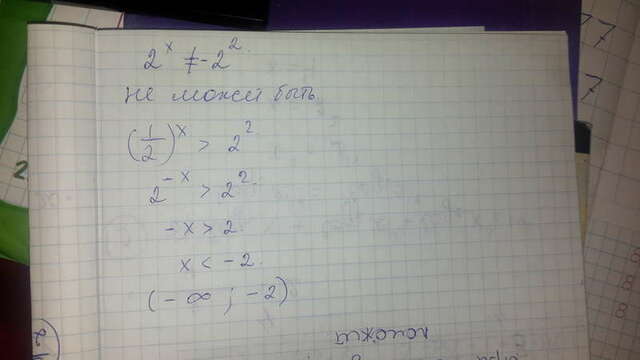 2^x ≠ -2^2.
не может быть.
(1/2)^x > 2^2.
2^-x > 2^2.
-x > 2.
x < -2.
(-∞ ; -2)